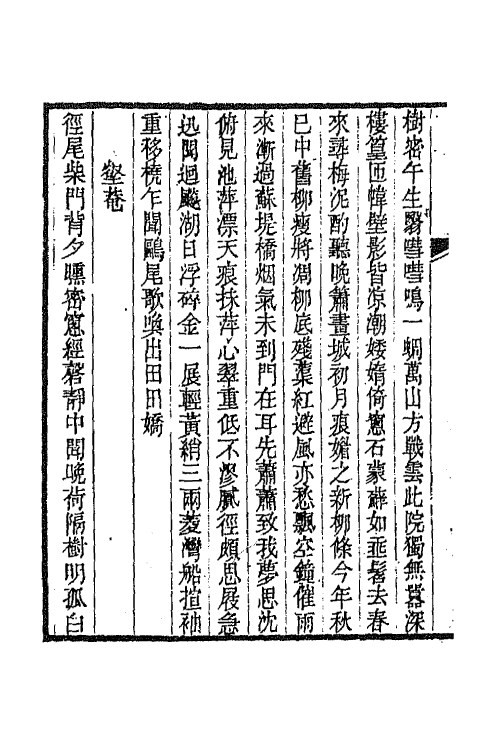 樹密午生翳嘒嘒鳴一蜩萬山方戰雲此院獨無囂深
樓篁匝幃壁影皆涼潮婑媠倚窻石蒙蘚如亜髻去春
來尋梅泥酌聽晚簫畫城初月痕媚之新柳條今年秋
已中舊柳瘦將凋柳底殘葉紅避風亦愁飄空鐘催雨
來漸過蘇堤橋烟氣未到門在耳先蕭蕭致我夢思沈
俯見池萍漂天痕抹萍心翠重低不漻膩徑頗思屐急
迅聞迴飈湖日浮碎金一展輕黃綃三兩菱灣船揎袖
重移橈乍聞鷗尾歌喚出田田嬌
壑菴
徑尾柴門背夕曛密窻經磬靜中聞晚荷隔樹明孤白